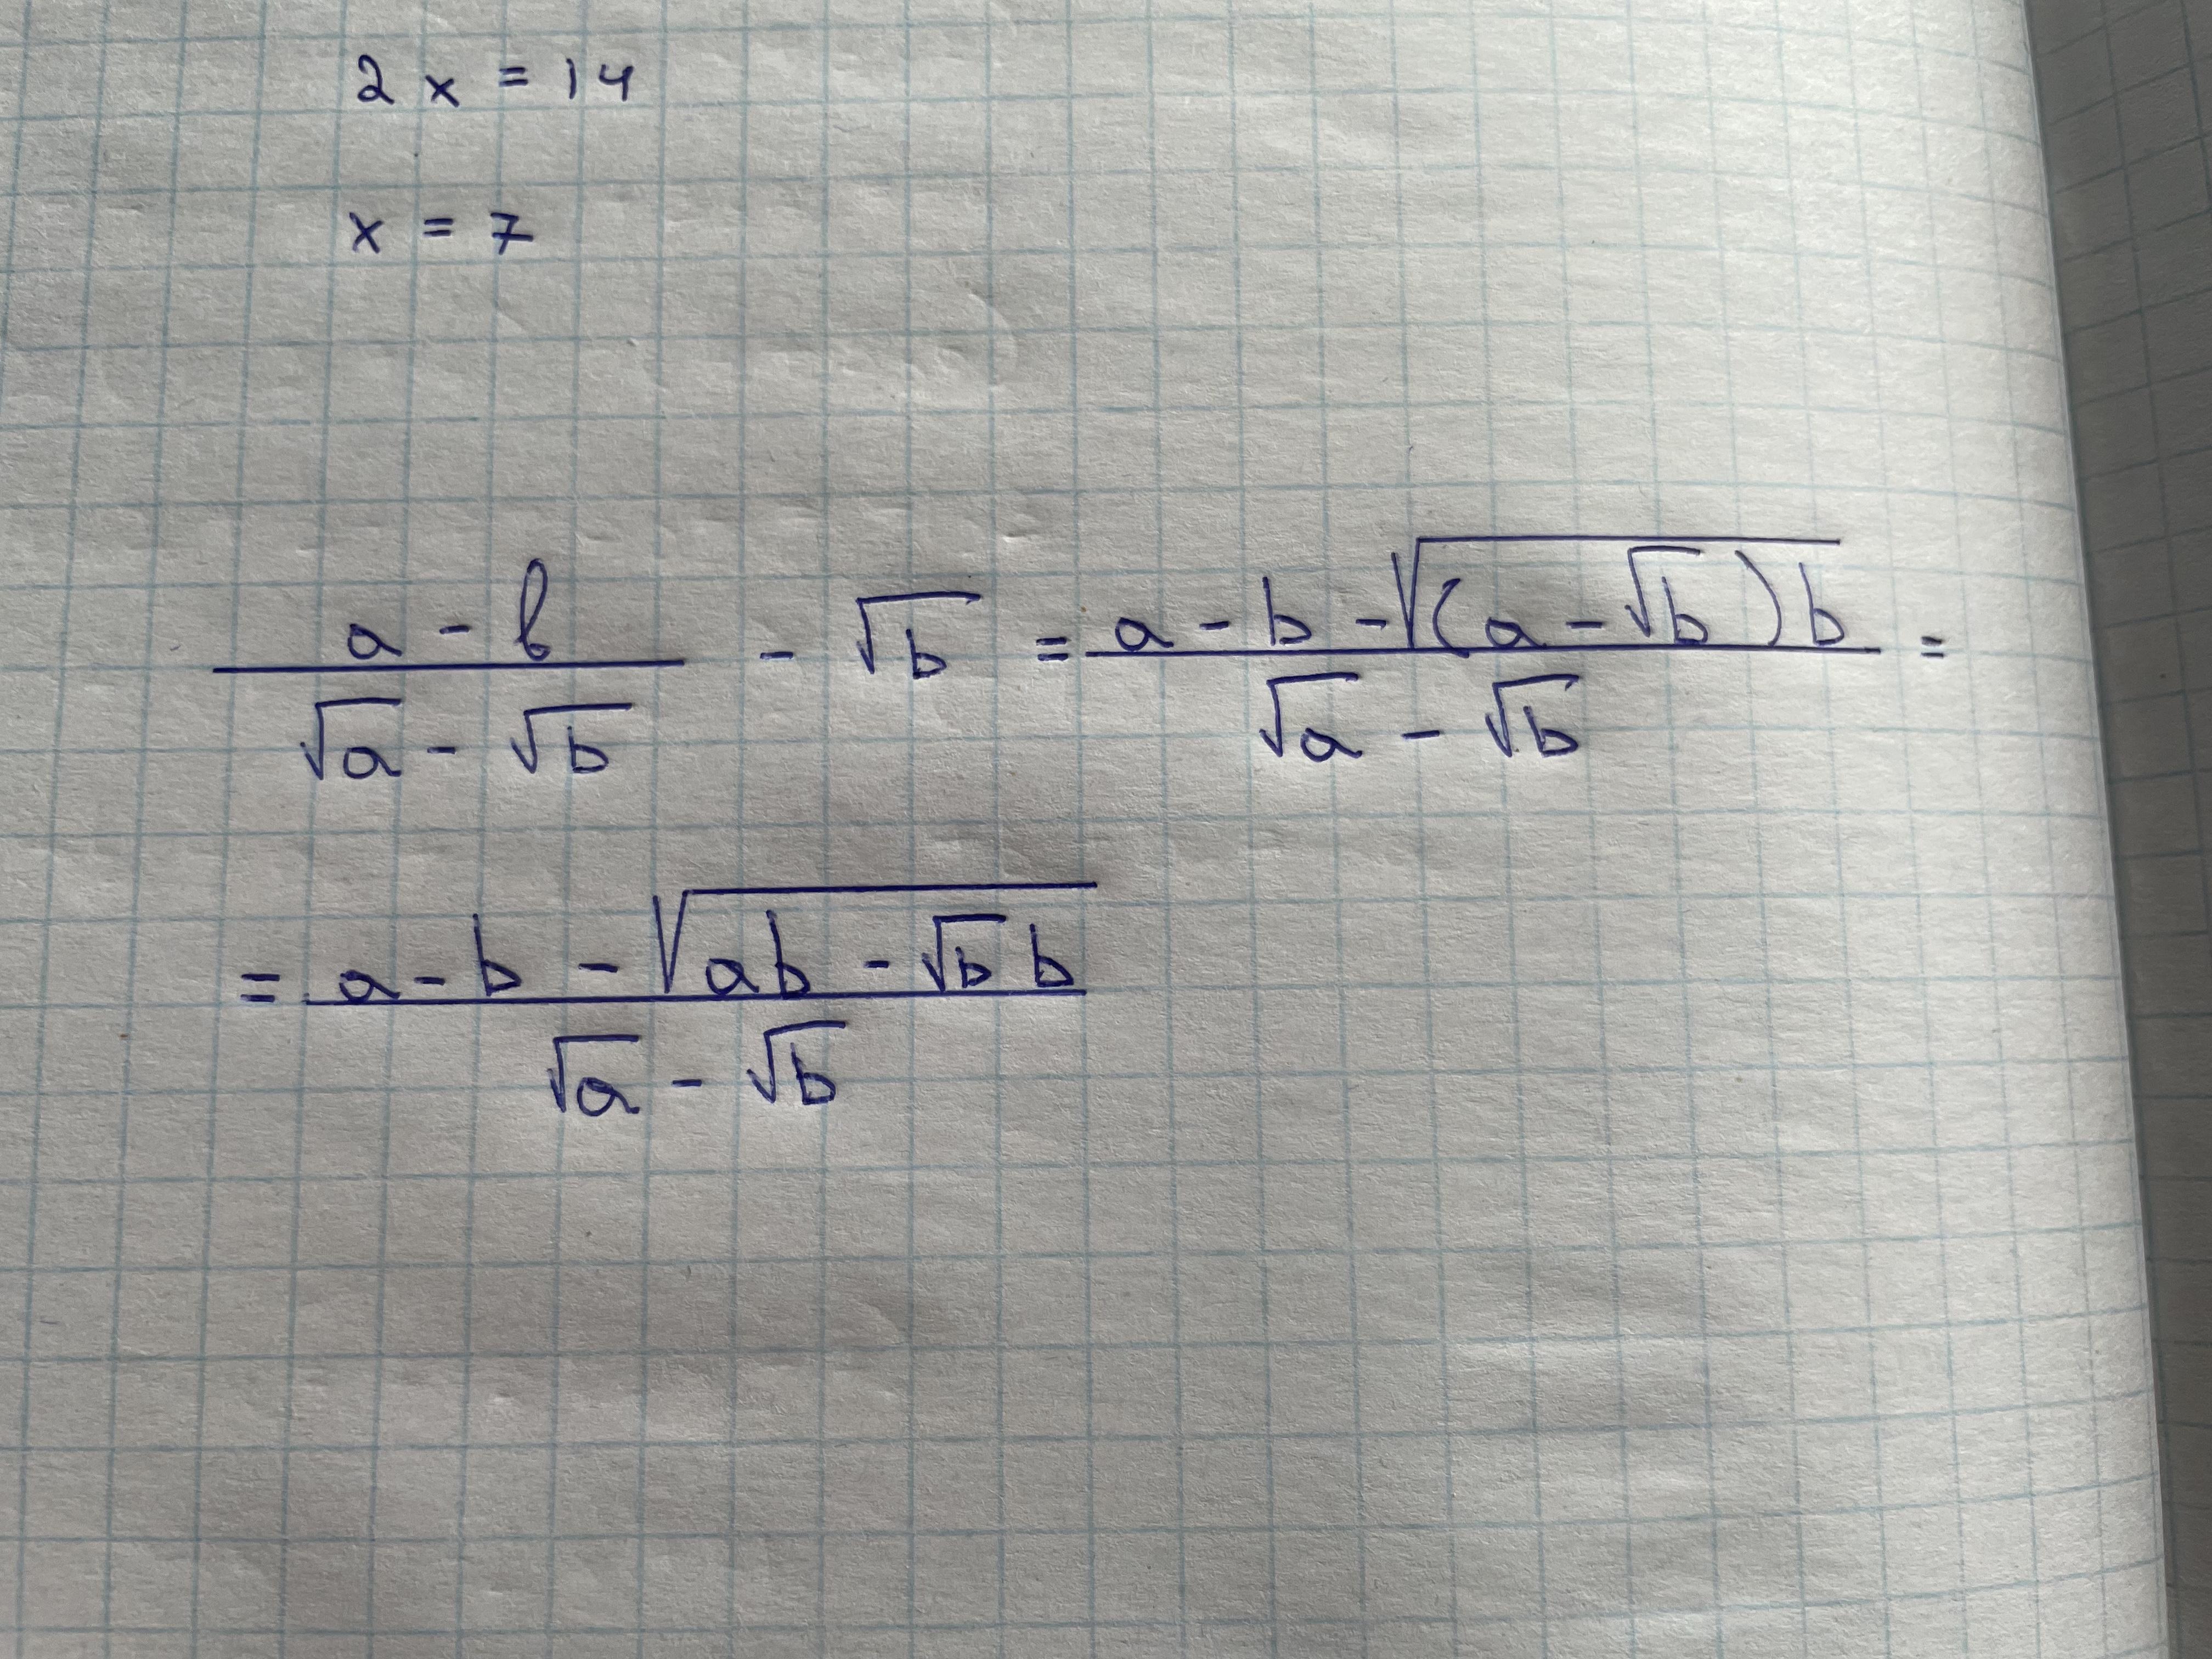 2x = 14
x = 7
\frac{a - b}{\sqrt{a} - \sqrt{b}} - \sqrt{b} = \frac{a - b - \sqrt{(a - \sqrt{b})b}}{\sqrt{a} - \sqrt{b}} =
= \frac{a - b - \sqrt{ab - \sqrt{b}b}}{\sqrt{a} - \sqrt{b}}